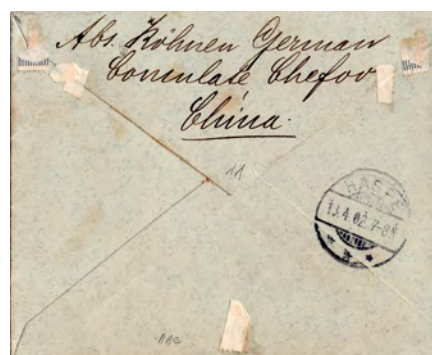 Abs. Köhnen German
Consulate, Chefoo
China.
11
HASPE
13.4.02.7-8N
AAG